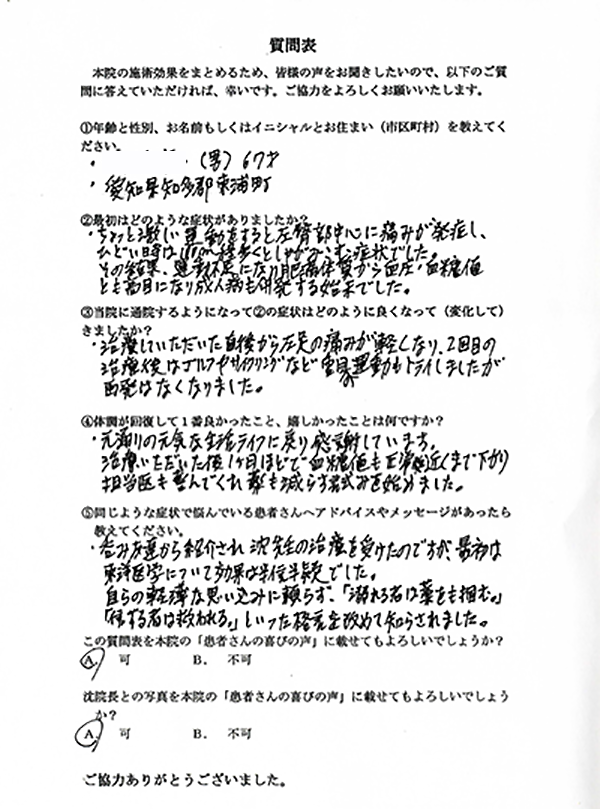 質問表
本院の施術効果をまとめるため、皆様の声をお聞きしたいので、以下のご質
問に答えていただければ、幸いです。ご協力をよろしくお願いいたします。
①年齢と性別、お名前もしくはイニシャルとお住まい（市区町村）を教えてく
ださい。
・ ・（男）67才
・愛知県知多郡東浦町
②最初はどのような症状がありましたか？
・ちょっと激しい運動をすると左臀部中心に痛みが発症し、
ひどい時は100m程歩くとしゃがみこむ症状でした。
その結果、運動不足になり肥満体質から血圧・血糖値
とも高目になり成人病も併発する始末でした。
③当院に通院するようになって②の症状はどのように良くなって（変化して）
きましたか？
・治療していただいた直後から左足の痛みが軽くなり、2回目の
治療後はゴルフやサイクリングなど運動もトライしましたが
再発はなくなりました。
④体調が回復して１番良かったこと、嬉しかったことは何ですか？
・元通りの元気な生活ライフに戻り感謝しています。
治療いただいた後1ヶ月ほどで血糖値も正常近くまで下がり
担当医も喜んでくれ薬も減らす試みを始めました。
⑤同じような症状で悩んでいる患者さんへアドバイスやメッセージがあったら
教えてください。
・呑み友達から紹介され沈先生の治療を受けたのですが、最初は
東洋医学について効果は半信半疑でした。
自らの軽薄な思い込みに頼らず、「溺れる者は藁をも掴む。」
「信ずる者は救われる。」といった格言を改めて知らされました。
この質問表を本院の「患者さんの喜びの声」に載せてもよろしいでしょうか？
A. 可 B. 不可
沈院長との写真を本院の「患者さんの喜びの声」に載せてもよろしいでしょう
か？
A. 可 B. 不可
ご協力ありがとうございました。